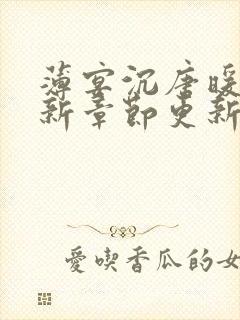 薄宴沉唐暖
新章節更新
愛喫香瓜的女